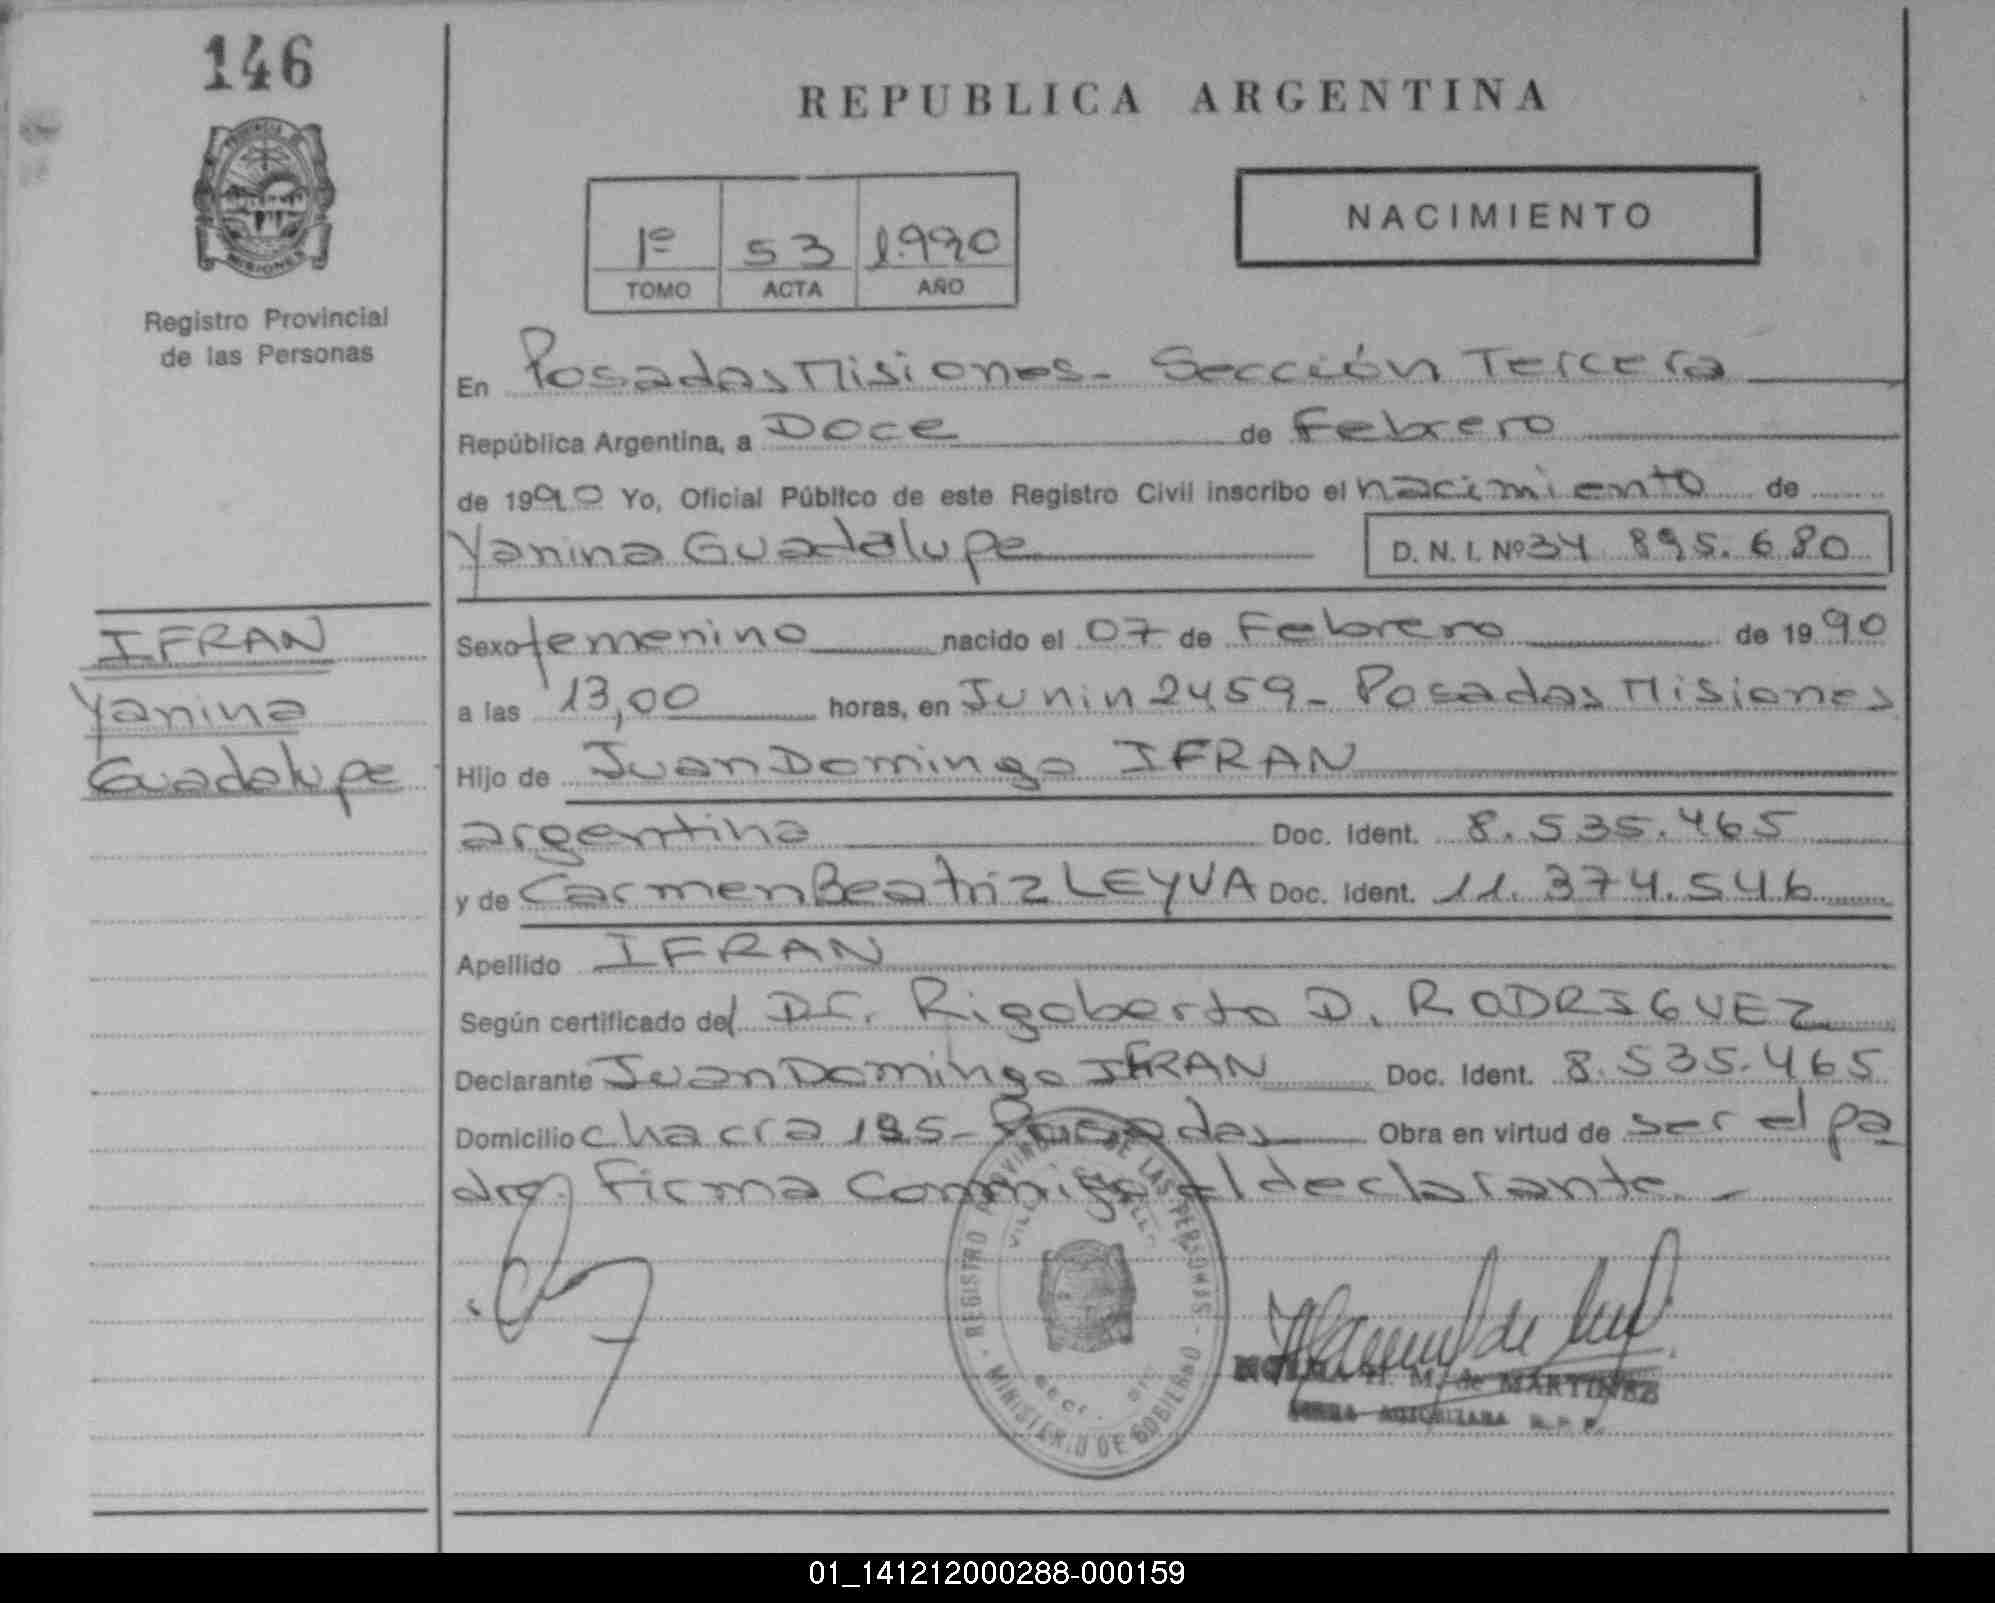 146
REPUBLICA ARGENTINA
PROVINCIA
MISIONES
Registro Provincial
de las Personas
1º 53 1.990
TOMO ACTA AÑO
NACIMIENTO
En Posadas Misiones - Sección Tercera
República Argentina, a Doce de Febrero
de 1990 Yo, Oficial Público de este Registro Civil inscribo el nacimiento de
Yanina Guadalupe D. N. I. Nº 34 895.680
IFRAN
Yanina
Guadalupe
Sexo femenino nacido el 07 de Febrero de 1990
a las 13,00 horas, en Junin 2459 - Posadas Misiones
Hijo de Juan Domingo IFRAN
argentina Doc. Ident. 8.535.465
y de Carmen Beatriz LEYVA Doc. Ident. 11.374.546
Apellido IFRAN
Según certificado del Dr. Rigoberto D. RODRIGUEZ
Declarante Juan Domingo IFRAN Doc. Ident. 8.535.465
Domicilio chacra - Posadas Obra en virtud de ser el pa
dre. Firma Conmigo el declarante. -
REGISTRO PROVINCIAL DE LAS PERSONAS - MINISTERIO DE GOBIERNO
H. M. de MARTINEZ
01_141212000288-000159